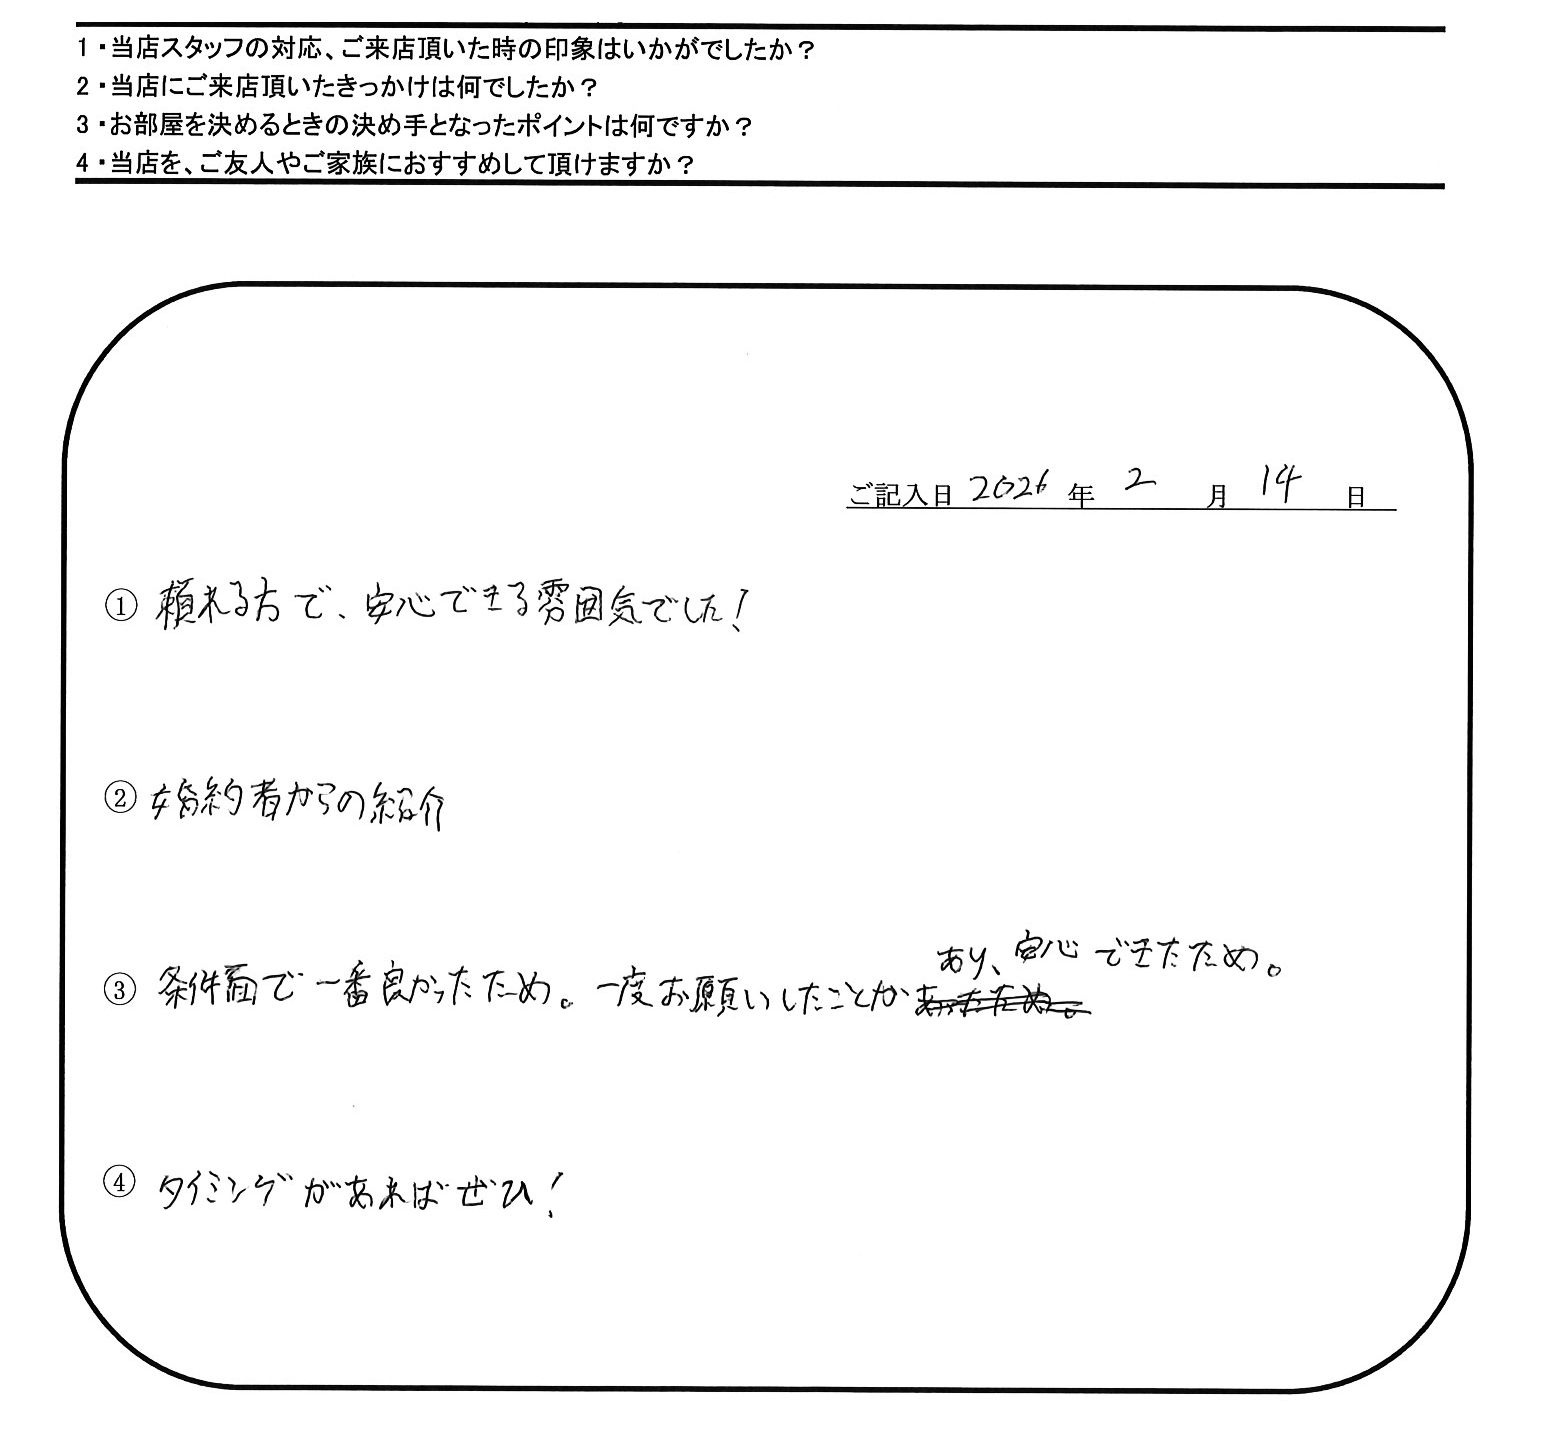 1・当店スタッフの対応、ご来店頂いた時の印象はいかがでしたか？
2・当店にご来店頂いたきっかけは何でしたか？
3・お部屋を決めるときの決め手となったポイントは何ですか？
4・当店を、ご友人やご家族におすすめして頂けますか？
ご記入日 2026 年 2 月 14 日
① 頼れる方で、安心できる雰囲気でした！
② 婚約者からの紹介
③ 条件面で一番良かったため。一度お願いしたことがあったため。
あり、安心できたため。
④ タイミングがあればぜひ！